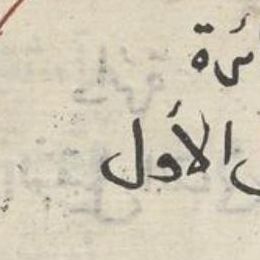 ئرة
الأول